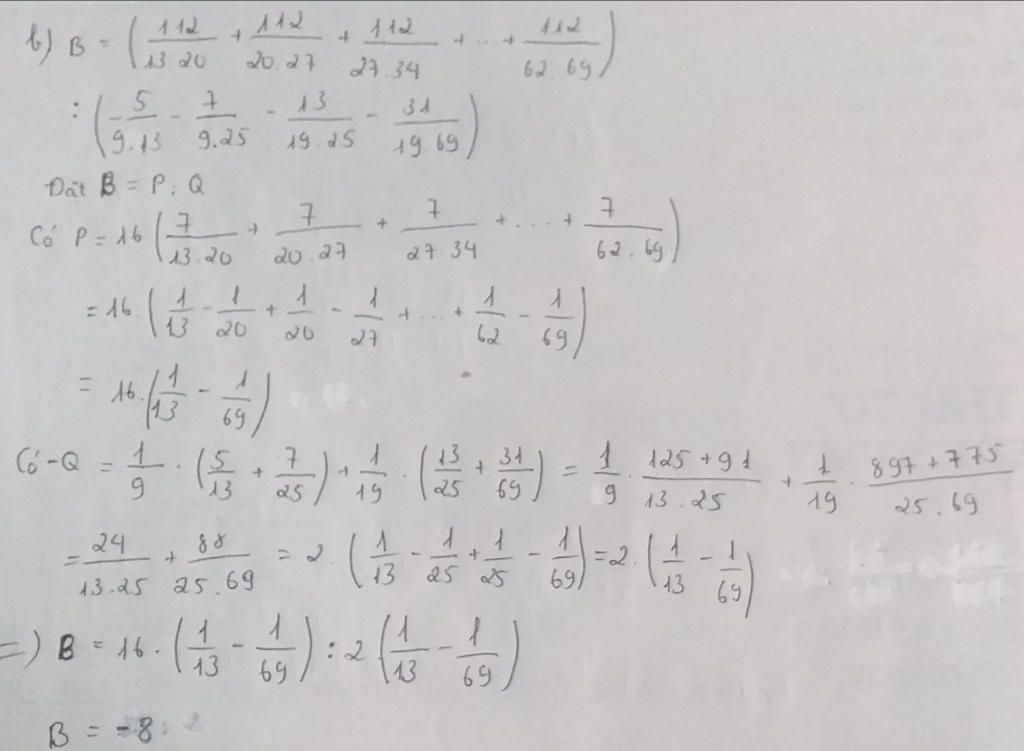 b) B = (112/13.20 + 112/20.27 + 112/27.34 + ... + 112/62.69)
: (-5/9.13 - 7/9.25 - 13/19.25 - 31/19.69)
Đặt B = P : Q
Có P = 16 (7/13.20 + 7/20.27 + 7/27.34 + ... + 7/62.69)
= 16. (1/13 - 1/20 + 1/20 - 1/27 + ... + 1/62 - 1/69)
= 16. (1/13 - 1/69)
Có -Q = 1/9 . (5/13 + 7/25) + 1/19 . (13/25 + 31/69) = 1/9 . 125+91/13.25 + 1/19 . 897+775/25.69
= 24/13.25 + 88/25.69 = 2. (1/13 - 1/25 + 1/25 - 1/69) = 2. (1/13 - 1/69)
=) B = 16 . (1/13 - 1/69) : 2 (1/13 - 1/69)
B = -8